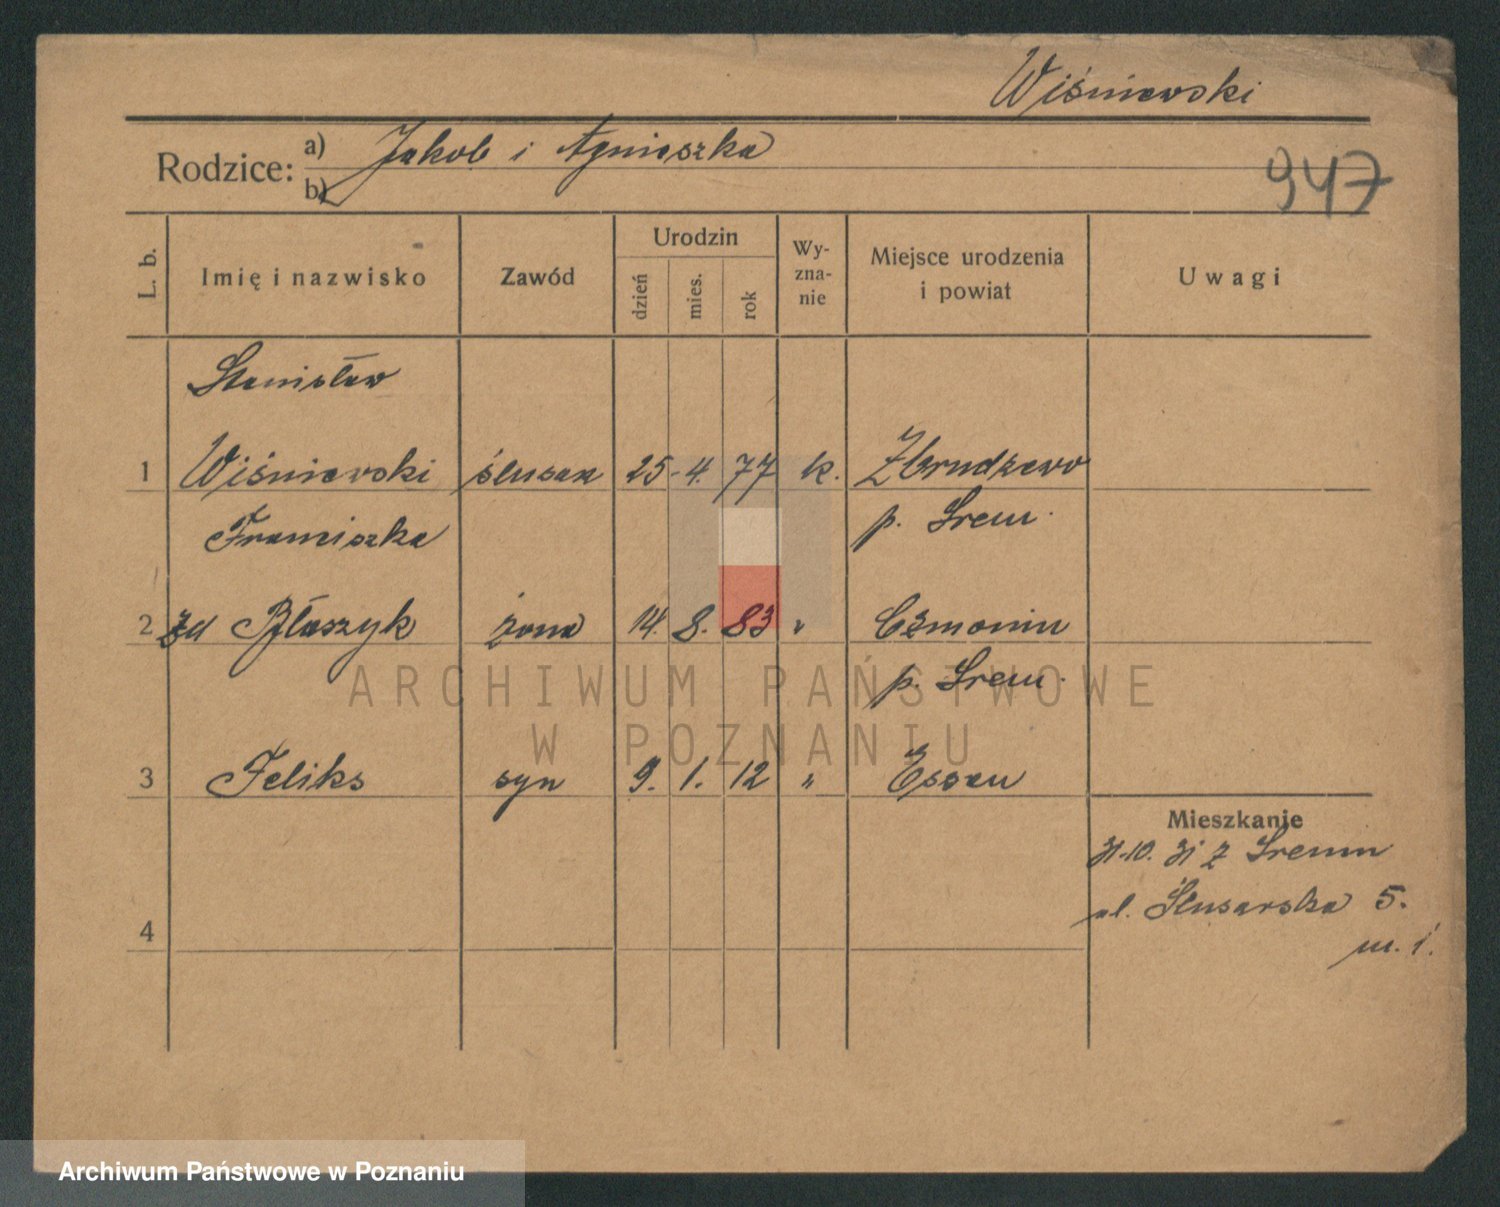 Wiśniewski
Rodzice: a) Jakob i Agnieszka
b)
947
L. b.
Imię i nazwisko
Zawód
Urodzin
dzień
mies.
rok
Wy-
zna-
nie
Miejsce urodzenia
i powiat
Uwagi
Stanisław
1 Wiśniewski ślusarz 25-4. 77 k. Zbrudzewo
Franciszka p. Śrem.
2 zd Błaszyk żona 14. 8. 83 " Czmoniu
p. Śrem.
3 Feliks syn 9. 1. 12 " Essen
Mieszkanie
31.10. 31 z Śremu
ul. Ślusarska 5.
m. 1.
4
ARCHIWUM PAŃSTWOWE
W POZNANIU
Archiwum Państwowe w Poznaniu